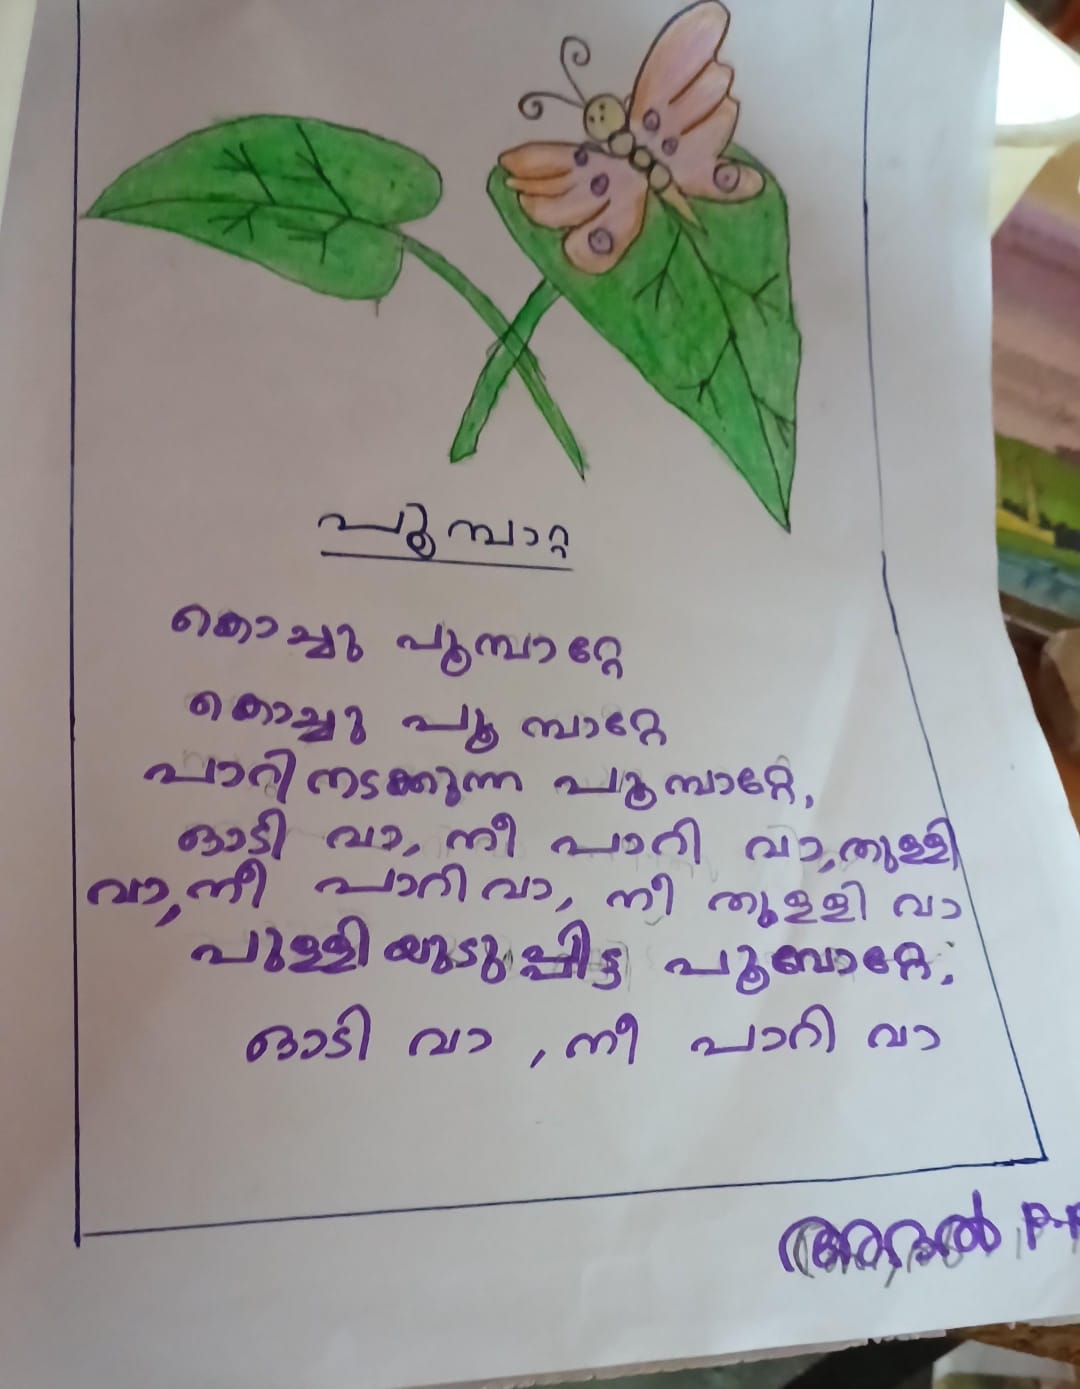 പൂമ്പാറ്റ
കൊച്ചു പൂമ്പാറ്റേ
കൊച്ചു പൂമ്പാറ്റേ
പാറി നടക്കുന്ന പൂമ്പാറ്റേ,
ഓടി വാ, നീ പാറി വാ, തുള്ളി
വാ, നീ പാറി വാ, നീ തുള്ളി വാ
പുള്ളിയുടുപ്പിട്ട പൂമ്പാറ്റേ,
ഓടി വാ , നീ പാറി വാ